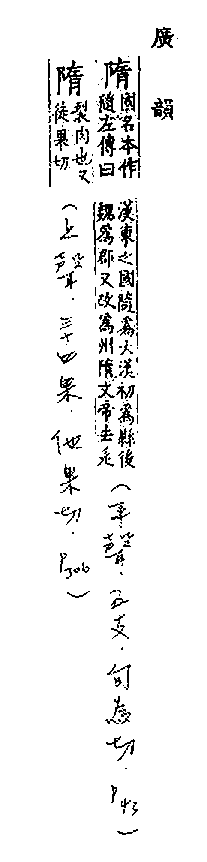 廣韻
隋國名本作隨左傳曰漢東之國隨爲大漢初爲縣後魏爲郡又改爲州隋文帝去辵(平聲.五支.旬爲切.P43)
隋裂肉也又徒果切(上聲.三十四果.他果切.P306)